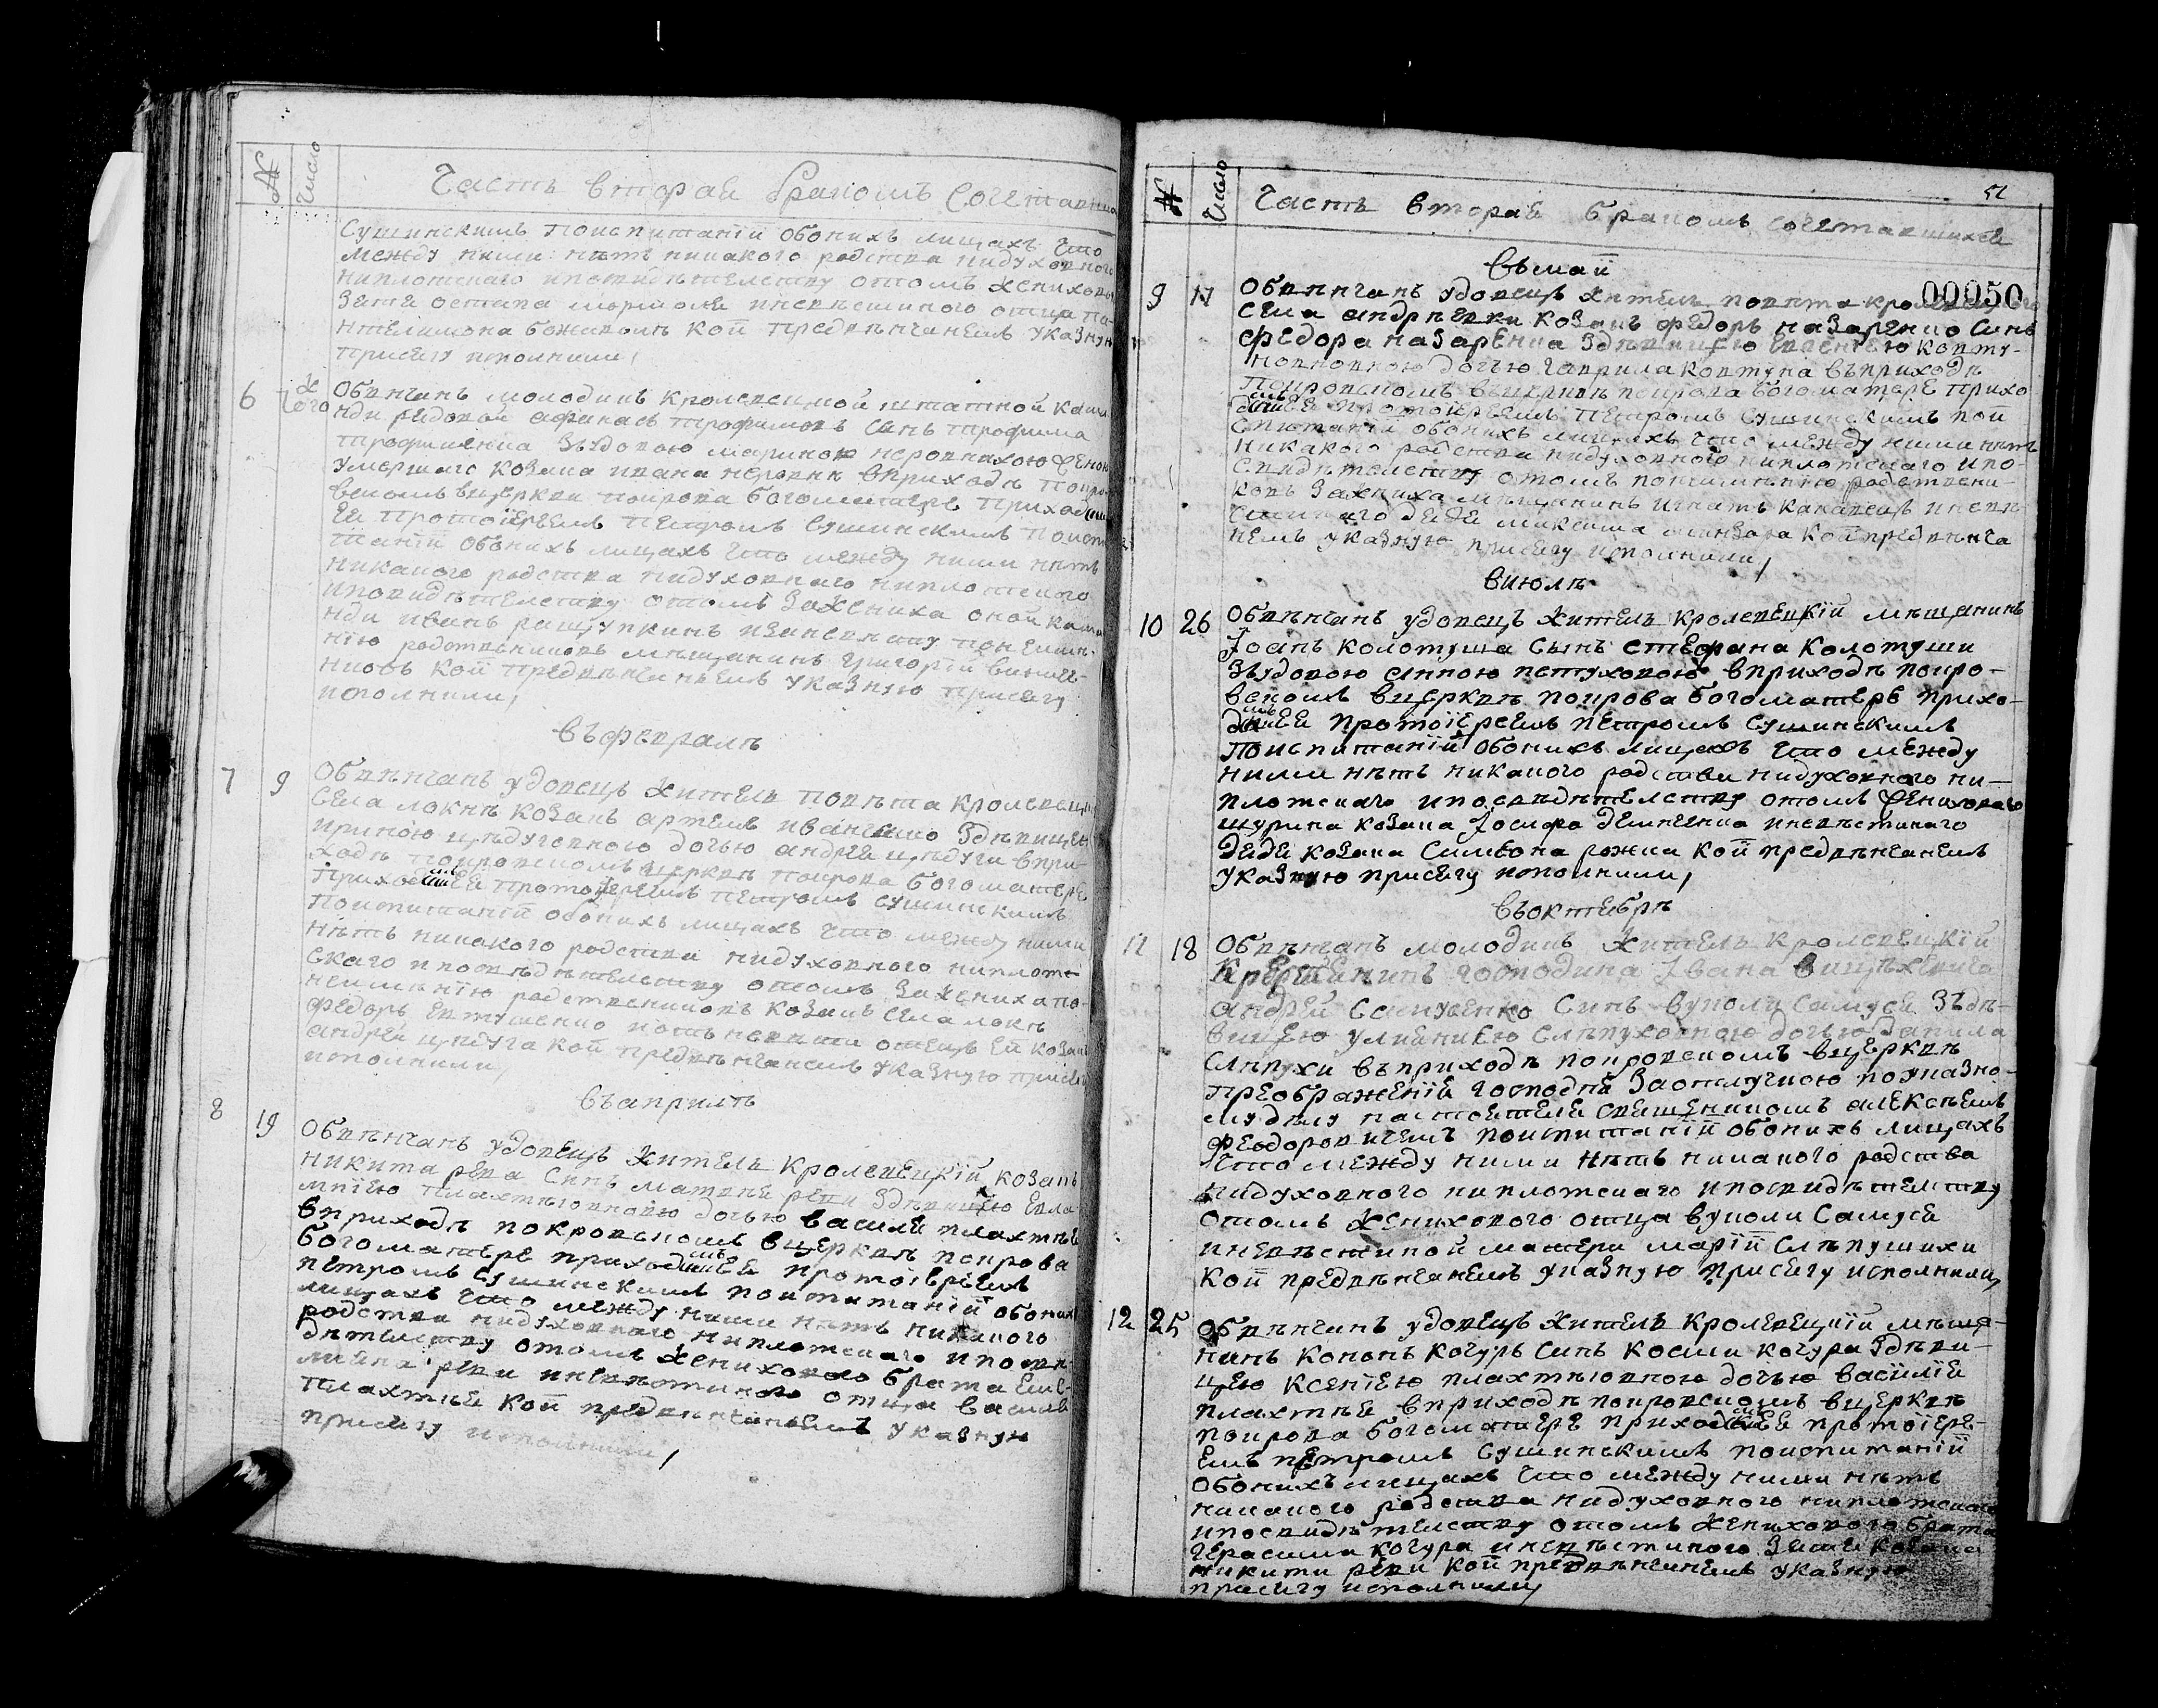 №
Число
Часть вторая бракомъ сочетавши
Сушинскимъ поиспитаніи обоихъ лицахъ что
между ними нетъ никакого родства нидуховного
ниплотскаго
зятя остапа иневестиного отца па-
нтелимона кой предвенчанемъ указную
присягу исполнили,
6
Обвенчанъ молодикъ кролевецкой штатной кома
нди редовой афанасъ трофимовъ синъ трофима
трофименка зъудовою мариною
умершаго козака ивана вприходѣ покро
вскомъ вцеркви покрова богоматере приходи
ей протоіереемъ петромъ Сушинскимъ поиспи
таніи обоихъ лицахъ что между ними нѣтъ
никакого родства нидуховного ниплотского
отомъ зажениха оной кома
нди иванъ ращупкинъ
нію родственниковъ мѣщанинъ григорій
кой предвѣнчанемъ указную присягу
исполнили,
въфевралѣ
7 9
Обвѣнчанъ удовецъ житель повѣта кролевецк
села локнѣ козакъ артемъ иванченко здѣвицею
дочью андрея впри-
ходѣ покровскомъ вцеркви покрова богоматере
приходшей протоіереемъ петромъ сушинскимъ
поиспитаніи обоихъ лицахъ что между ними
нѣтъ никакого родства нидуховного ниплот
скаго отомъ зажениха по
неимѣнію родственниковъ козакъ села локн
федоръ евтушенко отецъ ей козакъ
андрей кой предвѣнчанемъ указную присягу
исполнили,
въаприлѣ
8 19
Обвѣнчанъ удовецъ житель кролевецкій козакъ
никита рева синъ матвѣя реви здѣвицею евла-
мпіею плахтѣювною дочью василя плахтѣе
вприходѣ покровскомъ вцерквѣ покрова
богоматере приходшей протоіереемъ
петромъ сушинскимъ поиспитаніи обоихъ
лицахъ что между ними нѣтъ никакого
родства нидуховного ниплотскаго ипосви
дѣтелству отомъ женихового брата еме-
ляна реви иневѣстиного отца василя
плахтѣе кой предвѣнчанемъ указную
присягу исполнили,
№
Число
Часть вторая бракомъ сочетавшихся
51
00050
въмаіи
9
Обвѣнчанъ удовецъ житель повѣта кролевецкого
села андрѣевки козакъ федоръ назаренко синъ
федора назаренка здѣвицею евгеніею ковту-
новною дочью гаврила ковтуна въприходѣ
покровскомъ вцерквѣ покрова богоматере прихо
дшей протоіереемъ петромъ сушинскимъ пои
спитаніи обоихъ лицахъ что между ними нѣтъ
никакого родства нидуховного ниплотскаго ипо-
свидѣтелству отомъ понеимѣнію родствени-
ковъ зажниха мѣщанинъ игнатъ иневѣ
стиного дяди максима кой предвѣнча
немъ указную присягу исполнили,
виюлѣ
10 26
Обвѣнчанъ удовецъ житель кролевецкій мѣщанинъ
Іоанъ колотуша сынъ стефана колотуши
зъудовою анною петуховою вприходѣ покро-
вскомъ вцерквѣ покрова богоматере прихо-
дшей протоіереемъ петромъ сушинскимъ
поиспитаніи обоихъ лицахъ что между
ними нѣтъ никакого родства нидуховного ни-
плотскаго ипосвѣдѣтелству отомъ женихового
шурина козака Іосифа демченка иневѣстиного
дяди козака симеона рожка кой предвѣнчанемъ
указную присягу исполнили,
въоктебрѣ
11 18
Обвѣнчанъ молодикъ житель кролевецкій
крестянинъ господина Ивана
андрей самусенко синъ вуколи самуся здѣ-
вицею уляниею слѣпуховною дочью данила
слѣпухи въприходѣ покровскомъ вцерквѣ
преображенія господня заотлучкою поуказно-
му дѣлу настоятеля священникомъ алексѣемъ
феодоровичемъ поиспитаніи обоихъ лицахъ
что между ними нѣтъ никакого родства
нидуховного ниплотскаго ипосвидѣтелству
отомъ женихового отца вуколи самуся
иневѣстиной матери маріи слѣпушихи
кой предвѣнчанемъ указную присягу исполнили,
12 25
Обвѣнчанъ удовецъ житель кролевецкій мѣща-
нинъ кононъ когуръ синъ косми когура здѣви-
цею ксеніею плахтѣювною дочью василія
плахтѣе вприходѣ покровскомъ вцерквѣ
покрова богоматере приходшей протоіере-
емъ петромъ сушинскимъ поиспитаніи
обоихъ лицахъ что между ними нѣтъ
никакого родства нидуховного ниплотскаго
ипосвидѣтелству отомъ женихового брата
герасима когура иневѣстиного зятя козака
никити реви кой предвѣнчанемъ указную
присягу исполнили,